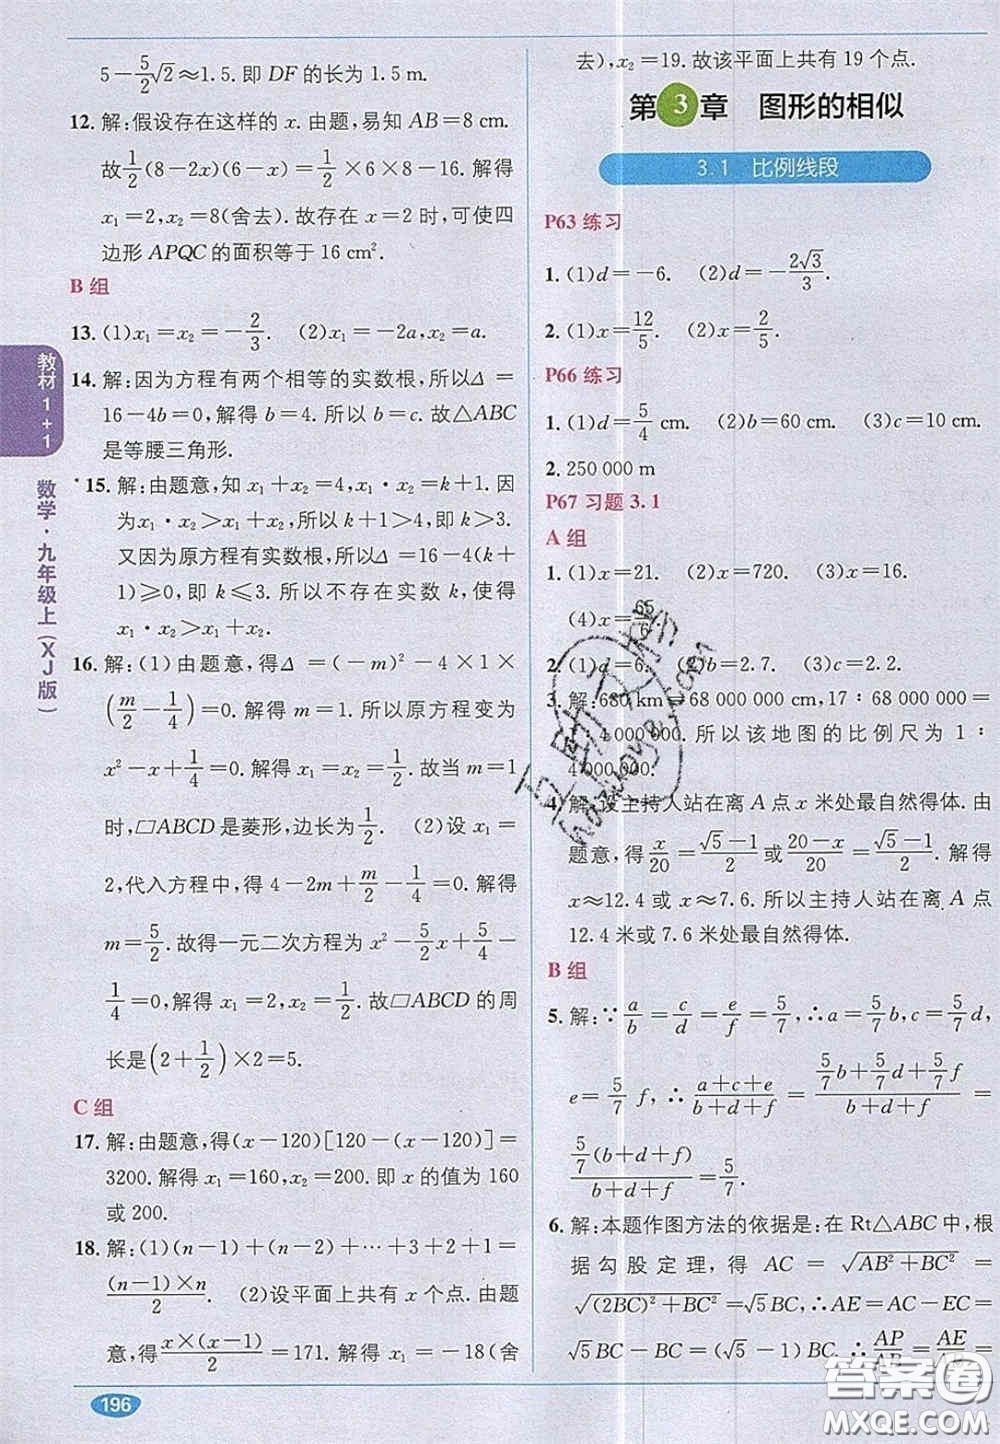 5－5/2√2≈1.5. 即 DF 的长为 1.5 m.
12. 解:假设存在这样的 x. 由题，易知 AB＝8 cm.
故 1/2(8－2x)(6－x)＝1/2×6×8－16. 解得
x₁＝2,x₂＝8(舍去). 故存在 x＝2 时,可使四
边形 APQC 的面积等于 16 cm².
B 组
13. (1)x₁＝x₂＝－2/3. (2)x₁＝－2a,x₂＝a.
14. 解:因为方程有两个相等的实数根,所以Δ＝
16－4b＝0,解得 b＝4. 所以 b＝c. 故△ABC
是等腰三角形.
*15. 解:由题意,知 x₁＋x₂＝4,x₁·x₂＝k＋1. 因
为x₁·x₂＞x₁＋x₂,所以 k＋1＞4,即 k＞3.
又因为原方程有实数根,所以Δ＝16－4(k＋
1)≥0,即 k≤3. 所以不存在实数 k,使得
x₁·x₂＞x₁＋x₂ 成立.
16. 解:(1)由题意,得Δ＝(－m)²－4×1×
(m/2－1/4)＝0. 解得 m＝1. 所以原方程变为
x²－x＋1/4＝0. 解得 x₁＝x₂＝1/2. 故当 m＝1
时,□ABCD 是菱形,边长为1/2. (2)设 x₁＝
2,代入方程中,得 4－2m＋m/2－1/4＝0. 解得
m＝5/2. 故得一元二次方程为 x²－5/2x＋5/4－
1/4＝0,解得 x₁＝2,x₂＝1/2. 故□ABCD 的周
长是(2＋1/2)×2＝5.
C 组
17. 解:由题意,得(x－120)[120－(x－120)]＝
3200. 解得 x₁＝160,x₂＝200. 即 x 的值为 160
或 200.
18. 解:(1)(n－1)＋(n－2)＋…＋3＋2＋1＝
(n－1)×n/2. (2)设平面上共有 x 个点. 由题
意,得x×(x－1)/2＝171. 解得 x₁＝－18(舍
去),x₂＝19. 故该平面上共有 19 个点.
第3章 图形的相似
3.1 比例线段
P63 练习
1. (1)d＝－6. (2)d＝－2√3/3.
2. (1)x＝12/5. (2)x＝2/5.
P66 练习
1. (1)d＝5/4 cm. (2)b＝60 cm. (3)c＝10 cm.
2. 250 000 m
P67 习题 3.1
A 组
1. (1)x＝21. (2)x＝720. (3)x＝16.
(4)x＝65/6.
2. (1)d＝6. (2)b＝2.7. (3)c＝2.2.
3. 解:680 km＝68 000 000 cm,17∶68 000 000＝
1∶4 000 000. 所以该地图的比例尺为 1∶
4 000 000.
4. 解:设主持人站在离 A 点 x 米处最自然得体. 由
题意,得x/20＝(√5－1)/2或(20－x)/20＝(√5－1)/2. 解得
x≈12.4 或 x≈7.6. 所以主持人站在离 A 点
12.4 米或 7.6 米处最自然得体.
B 组
5. 解:∵a/b＝c/d＝e/f＝5/7,∴a＝5/7b,c＝5/7d,
e＝5/7f,∴(a＋c＋e)/(b＋d＋f)＝(5/7b＋5/7d＋5/7f)/(b＋d＋f)＝
5/7(b＋d＋f)/(b＋d＋f)＝5/7.
6. 解:本题作图方法的依据是:在 Rt△ABC 中,根
据勾股定理,得 AC＝√(AB²＋BC²)＝
√((2BC)²＋BC²)＝√5BC,∴AE＝AC－EC＝
√5BC－BC＝(√5－1)BC. ∴AP/AB＝AE/
教材 1+1
数学·九年级上(XJ版)
196
答案圈
MXQE.COM